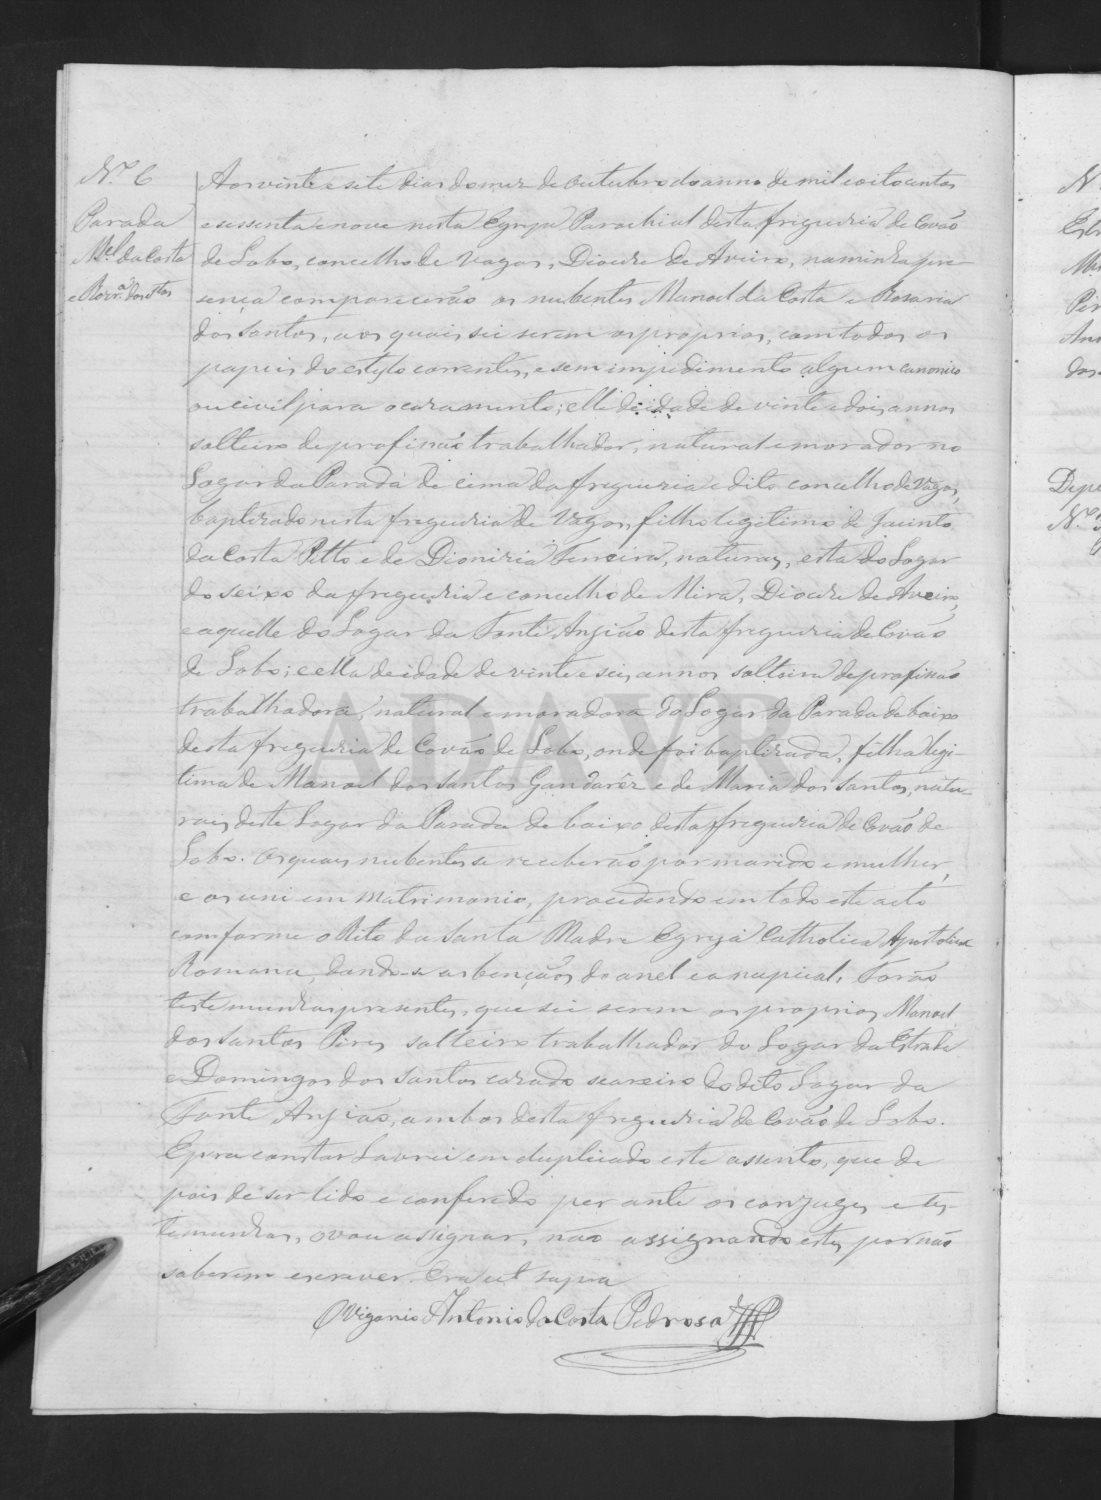 N.º 6
Parada
M.el da Costa
e Rozr.ª dos S.tos
Aos vinte e sete dias do mez de Outubro do anno de mil oito centos
e sessenta e nove nesta Egreja Parochial desta freguezia de Covão
de Lobo, concelho de Vagos, Diocese de Aveiro, na minha pre-
sença comparecerão os nubentes Manoel da Costa e Rosaria
dos Santos, aos quais sei serem os proprios, com todos os
papeis do estylo correntes, e sem impedimento algum canonico
ou civil para o casamento; elle de idade de vinte e dois annos
solteiro de profissão trabalhador, natural e morador no
Logar da Parada de cima da freguezia e dito concelho de Vagos,
baptizado nesta freguezia de Vagos, filho legitimo de Jacinto
da Costa Petto e de Dionizia Ferreira, naturaes, esta do Logar
do Seixo da freguezia e concelho de Mira, Diocese de Aveiro,
e aquelle do Logar da Fonte Anjião desta freguezia de Covão
de Lobo; e ella de idade de vinte e seis annos solteira de profissão
trabalhadora, natural e moradora do Logar da Parada de baixo
desta freguezia de Covão de Lobo, onde foi baptizada, filha legi-
tima de Manoel dos Santos Gandarêz e de Maria dos Santos, natu-
raes deste Logar da Parada de baixo desta freguezia de Covão de
Lobo. Os quaes nubentes se receberão por marido e mulher,
e os uni em Matrimonio, procedendo em todo este acto
conforme o Rito da Santa Madre Egreja Catholica Apostolica
Romana, dando-se as bençãos do anel e a nupcial. Forão
testemunhas presentes, que sei serem os proprios Manoel
dos Santos Pires solteiro trabalhador do Logar da Estrada
e Domingos dos Santos cazado seareiro do dito Logar da
Fonte Anjião, ambos desta freguezia de Covão de Lobo.
E pra constar Lavrei em duplicado este assento, que de
pois de ser lido e conferido per ante os conjuges e tes-
temunhas, o vou assignar, não assignando estes por não
saberem escrever. Era ut supra
O Vigario Antonio da Costa Pedrosa
ADAVR
N
Estr
Pir
dos
Depo